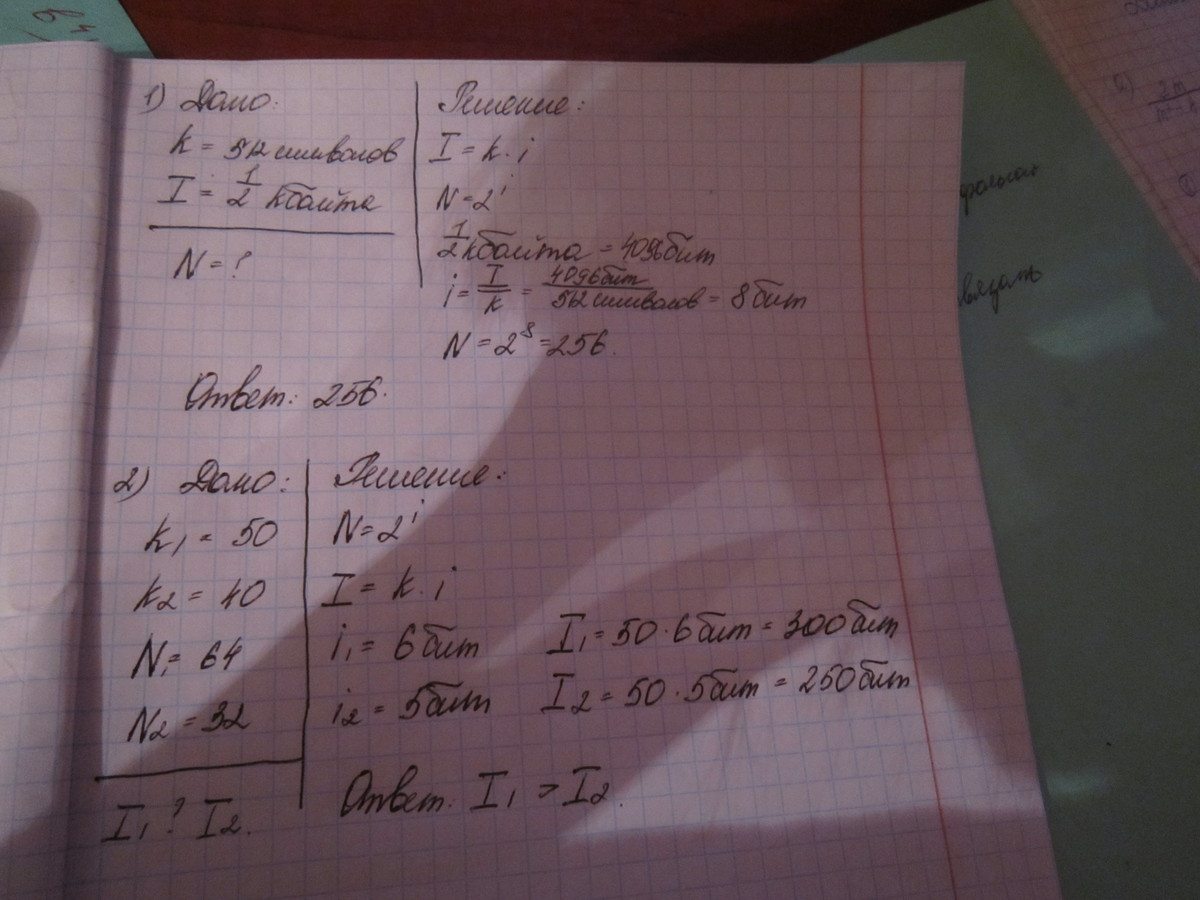 1) Дано:
k = 512 символов
I = 1/2 кбайта
N = ?
Решение:
I = k · i
N = 2^i
1/2 кбайта = 4096 бит
i = I/k = 4096 бит/512 символов = 8 бит
N = 2^8 = 256.
Ответ: 256.
2) Дано:
k₁ = 50
k₂ = 40
N₁ = 64
N₂ = 32
I₁ ? I₂.
Решение:
N = 2^i
I = k · i
i₁ = 6 бит I₁ = 50 · 6 бит = 300 бит
i₂ = 5 бит I₂ = 50 · 5 бит = 250 бит
Ответ: I₁ > I₂.